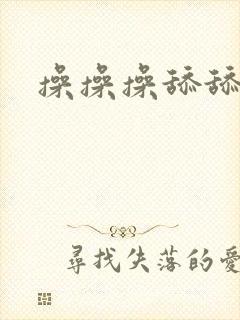 操操操舔舔
尋找失落的愛